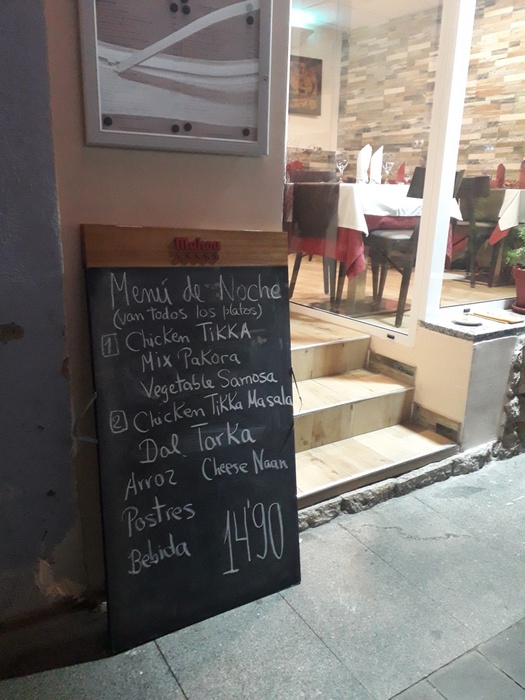 Mahou
Menú de Noche
(van todos los platos)
1 Chicken TIKKA
Mix Pakora
Vegetable Samosa
2 Chicken Tikka Masala
Dal Tarka
Arroz Cheese Naan
Postres
Bebida 14'90